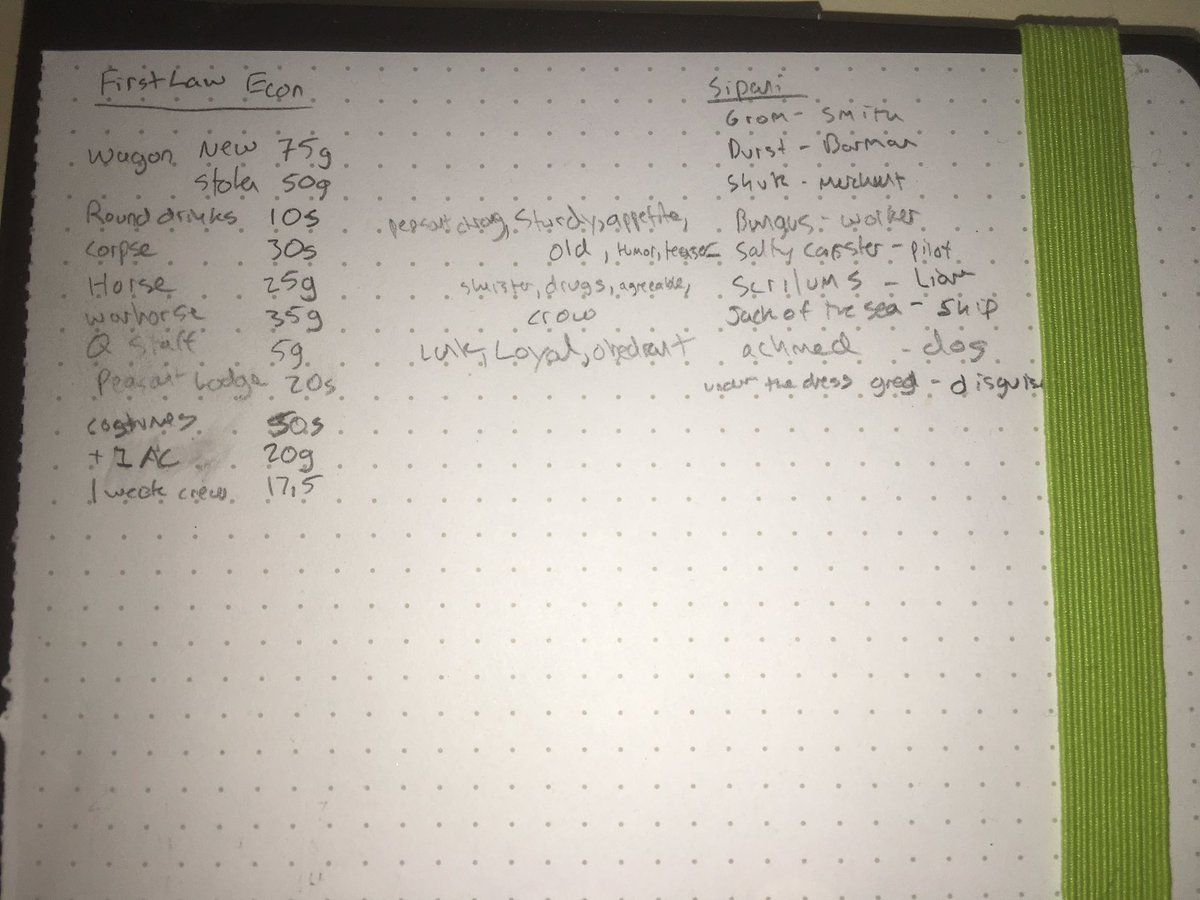 First Law Econ
Wagon New 75g
Stolen 50g
Round drinks 10s
Corpse 30s
Horse 25g
warhorse 35g
Q Staff 5g
Peasant Lodge 20s
costumes 50s
+1 AC 20g
1 week crew 17,5
peasant, strong, Sturdy, appetite,
old, humor, teaser
sinister, drugs, agreeable,
crow
Loyal, obedient
Sipani
Grom - Smith
Durst - Barman
Shuk - merchant
Bungus - worker
Salty - pilot
Scrilums - Liar
Jack of the sea - Ship
achmed - dog
under the dress greg - disguise